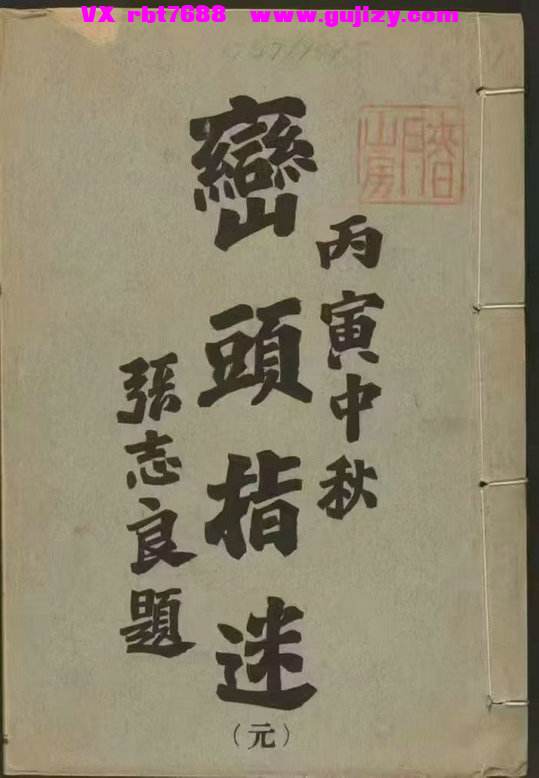 VX rbt7688 www.gujizy.com
丙寅中秋
巒頭指迷
(元)
張志良題